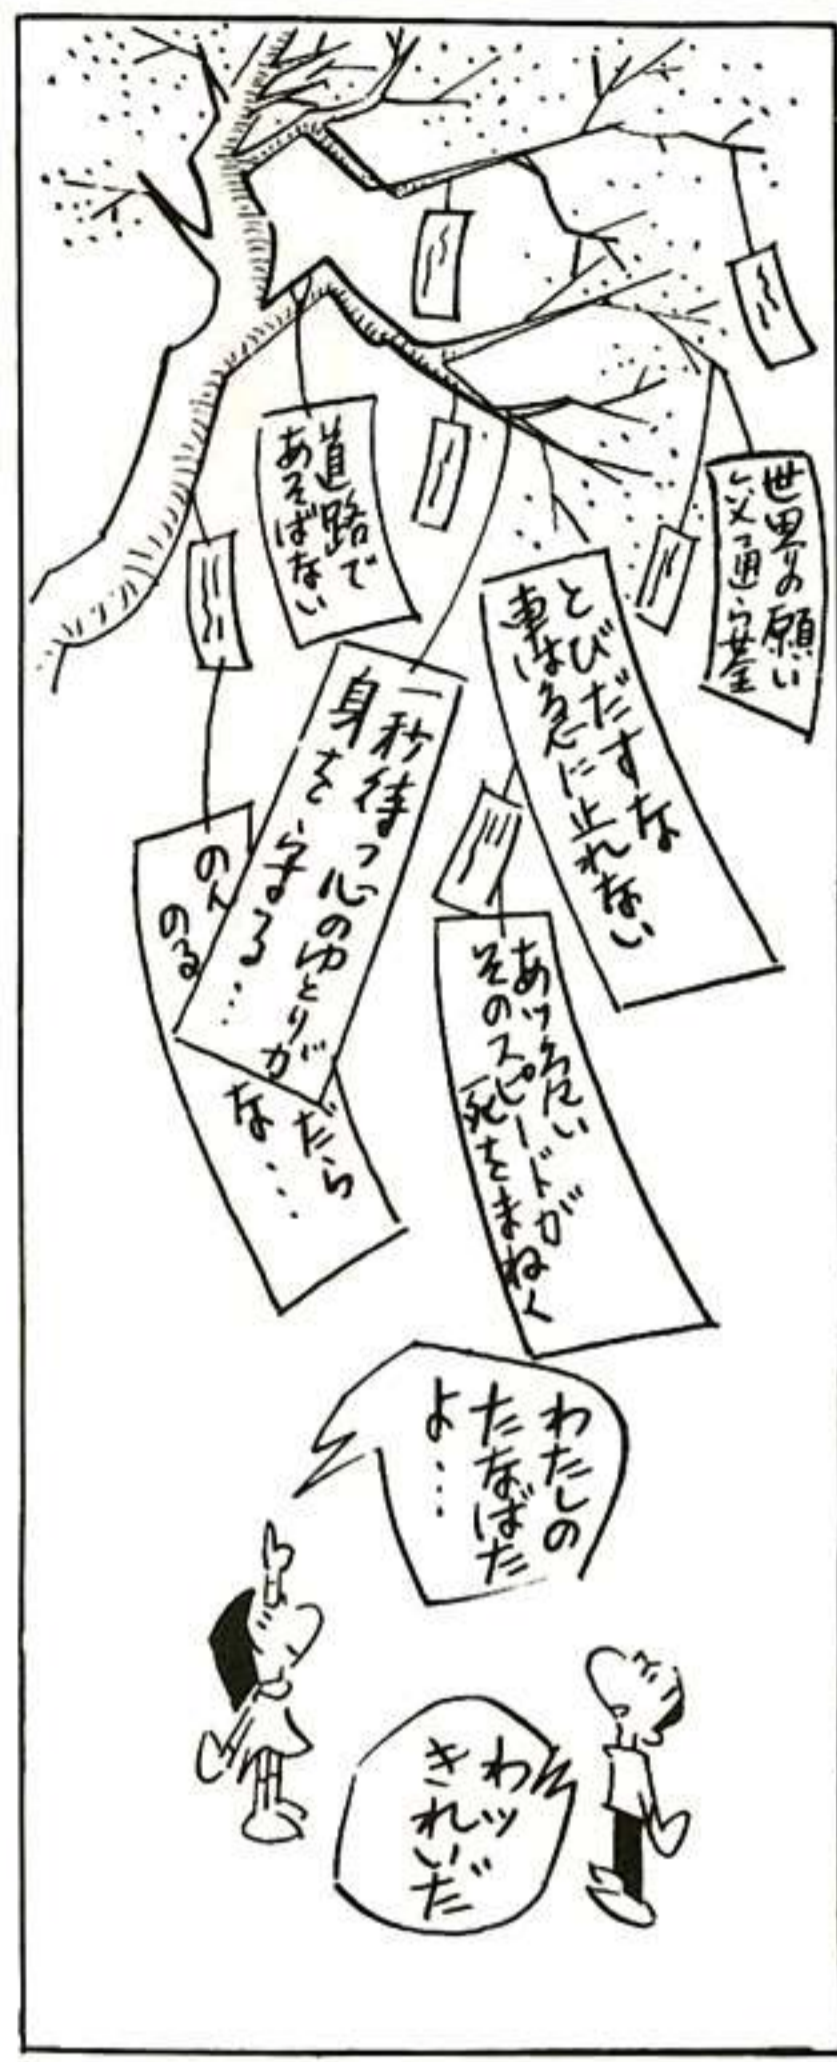 世界の願い
交通安全
とびだすな
車は急に止れない
道路で
あそばない
一秒待つ心のゆとりが
身を守る…
のん
だら
のる
な・・・
あッ危い
そのスピードが
死をまねく
わたしの
たなばた
よ・・・
わッ
きれいだ